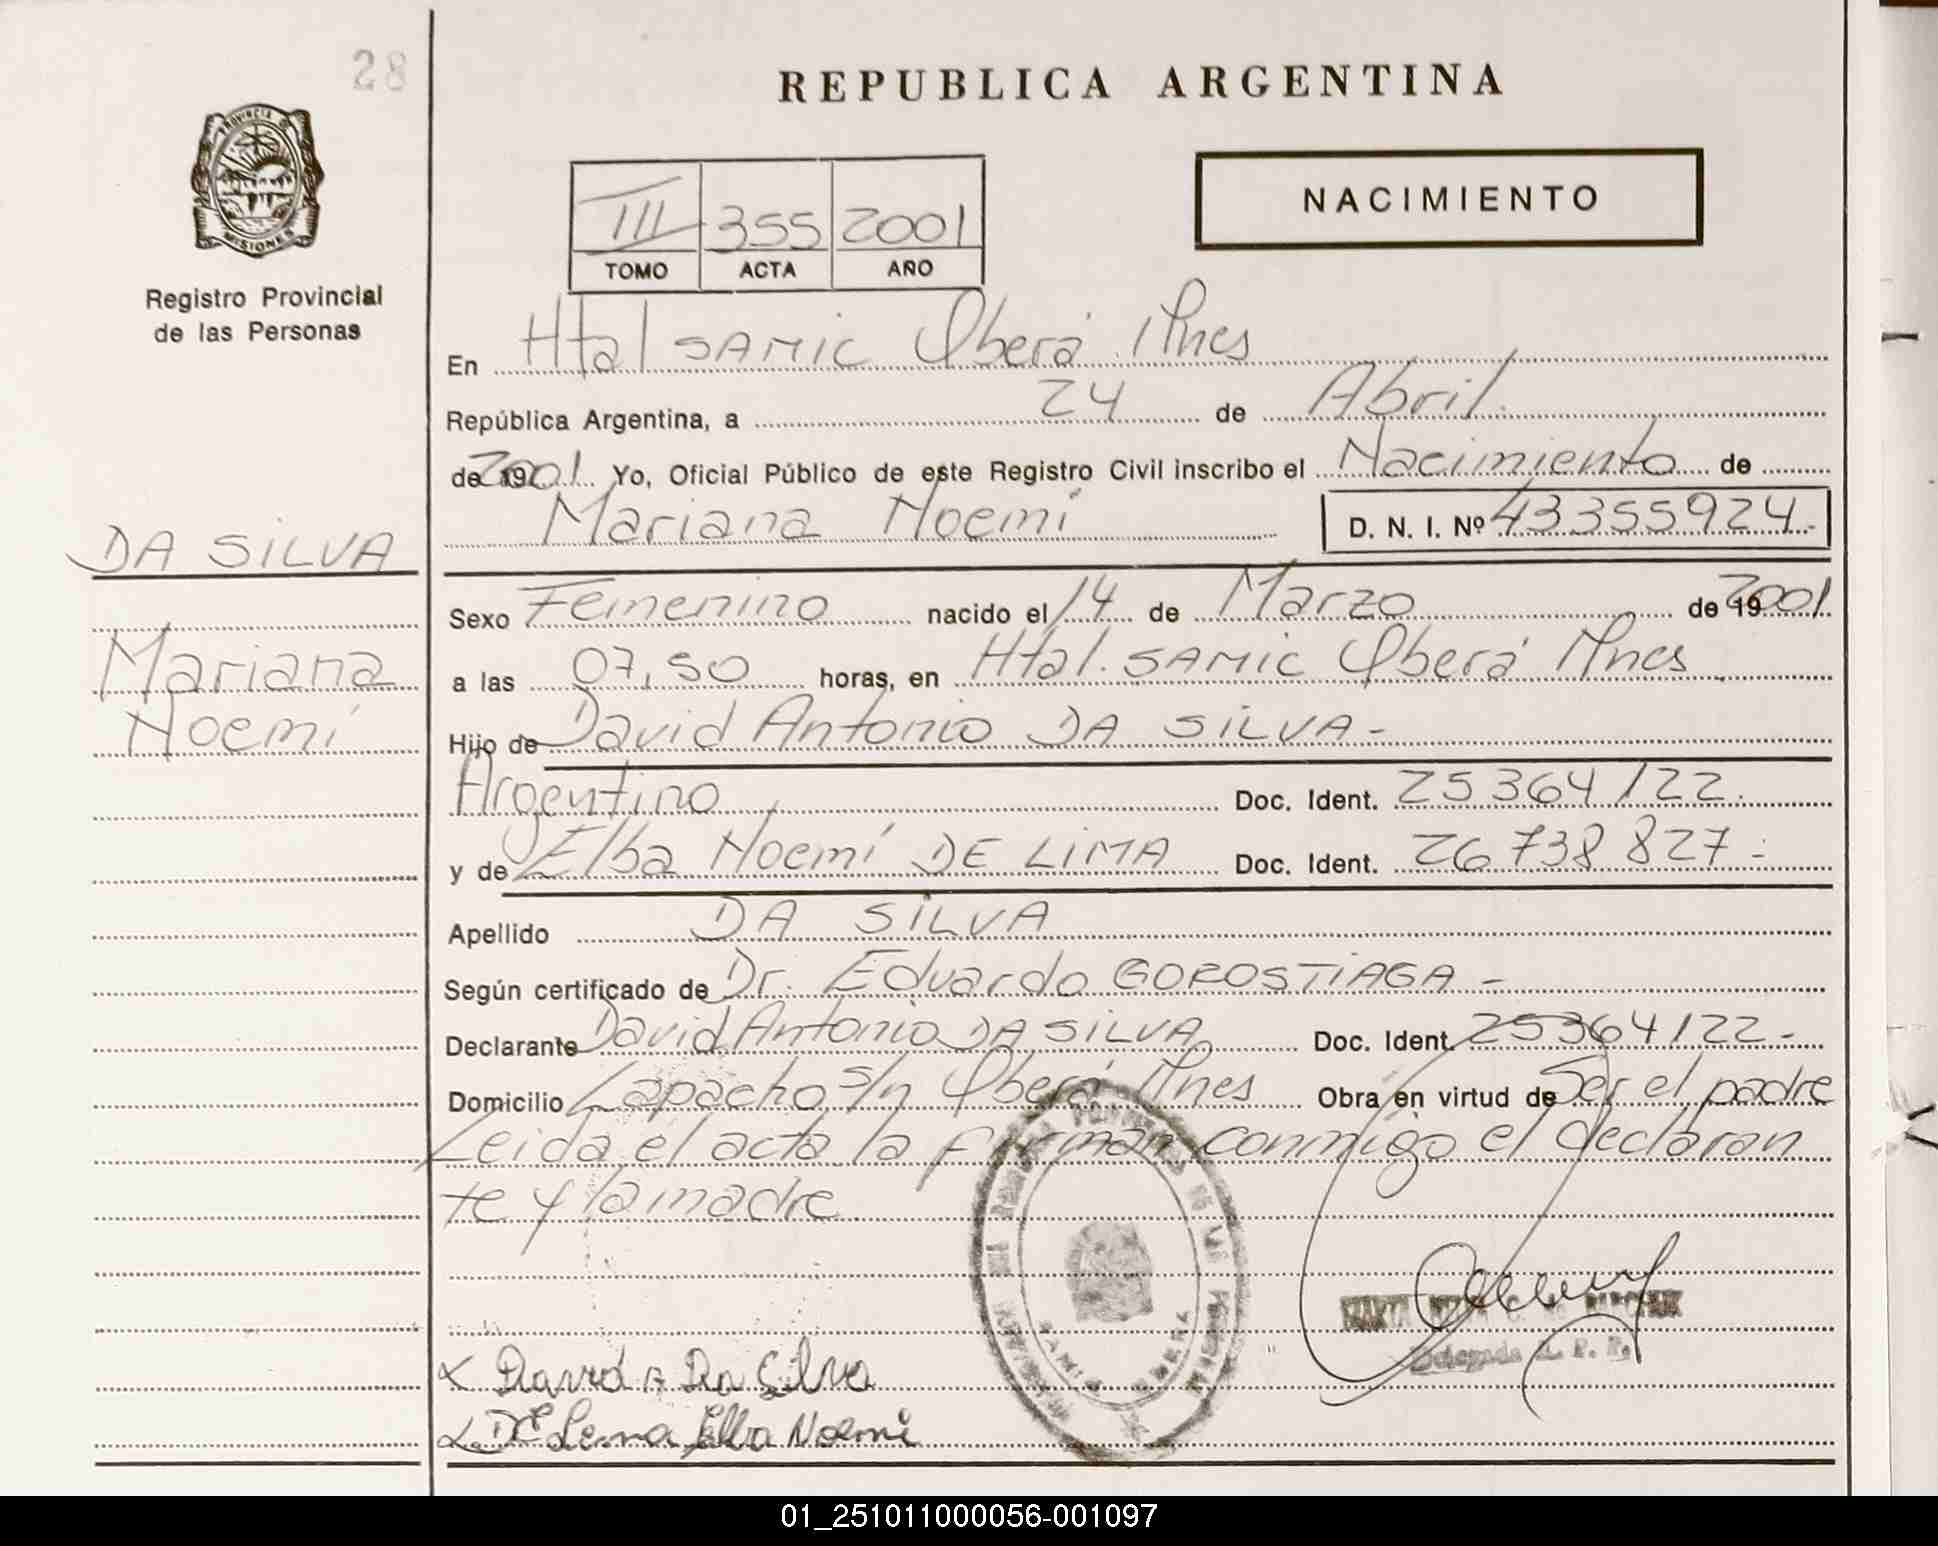 28
REPUBLICA ARGENTINA
PROVINCIA DE
MISIONES
Registro Provincial
de las Personas
III 355 2001
TOMO ACTA AÑO
NACIMIENTO
En Htal SAMIC Oberá Mnes
República Argentina, a 24 de Abril.
de 19 2001 Yo, Oficial Público de este Registro Civil inscribo el Nacimiento de
Mariana Noemí D. N. I. Nº 43355924.-
DA SILVA
Mariana
Noemí
Sexo Femenino nacido el 14 de Marzo de 19 2001
a las 07,50 horas, en Htal. SAMIC Oberá Mnes
Hijo de David Antonio DA SILVA-
Argentino Doc. Ident. 25364122.
y de Elba Noemí DE LIMA Doc. Ident. 26738827-
Apellido DA SILVA
Según certificado de Dr. Eduardo GOROSTIAGA-
Declarante David Antonio DA SILVA Doc. Ident. 25364122-
Domicilio Lapacho s/n Oberá Mnes Obra en virtud de Ser el padre
Leida el acta la firman conmigo el declaran
te y la madre
Delegada R. P. P.
SAMIC OBERA
David A Da Silva
De Lema Elba Noemi
01_251011000056-001097